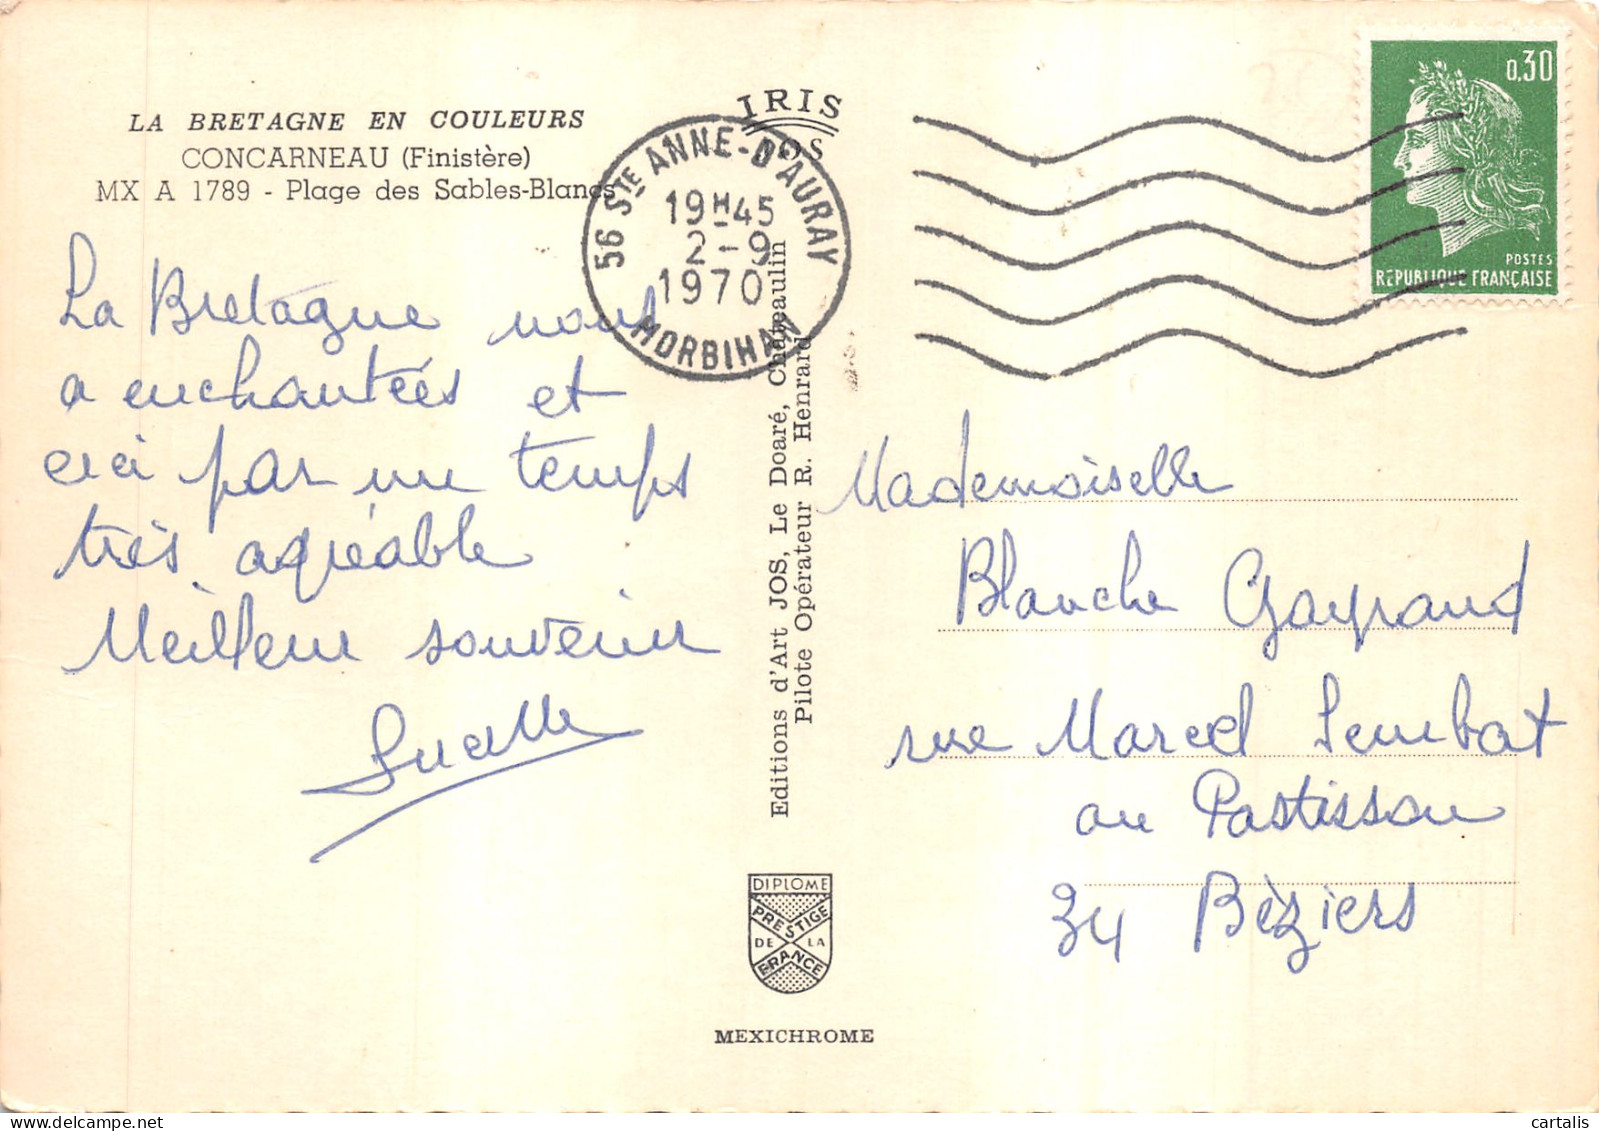 LA BRETAGNE EN COULEURS
CONCARNEAU (Finistère)
MX A 1789 - Plage des Sables-Blancs
La Bretagne nous
a enchantées et
ceci par un temps
très agréable
Meilleur souvenir
Lucette
IRIS
JOS
56 STE ANNE-D'AURAY
19H45
2-9
1970
MORBIHAN
Editions d'Art JOS, Le Doaré, Châteaulin
Pilote Opérateur R. Henrard
DIPLOME
PRESTIGE
DE LA
FRANCE
MEXICHROME
0,30
POSTES
RÉPUBLIQUE FRANÇAISE
Mademoiselle
Blanche Gayraud
rue Marcel Sembat
au Pastissou
34 Béziers
cartalis